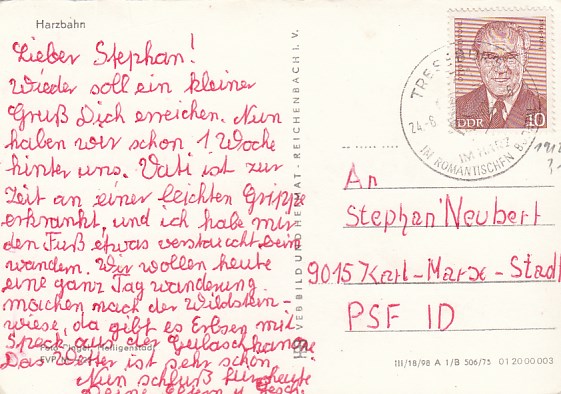 Harzbahn
Lieber Stephan!
Wieder soll ein kleiner
Gruß Dich erreichen. Nun
haben wir schon 1 Woche
hinter uns. Vati ist zur
Zeit an einer leichten Grippe
erkrankt, und ich habe mir
den Fuß etwas verstaucht beim
wandern. Wir wollen heute
eine ganz Tag wanderung
machen nach der Wildstein-
wiese, da gibt es Erbsen mit
Speck aus der Gulaschkanone
Das Wetter ist sehr schön
Nun schluß für heute
Deine Eltern u. Gesch.
VEB BILD UND HEIMAT · REICHENBACH I. V.
DDR 10
TRESE
24.-8.
IM HARZ
IM ROMANTISCHEN
An
Stephan Neubert
9015 Karl-Marx-Stadt
PSF 1D
III/18/98 A 1/B 506/75 01 20 00 003